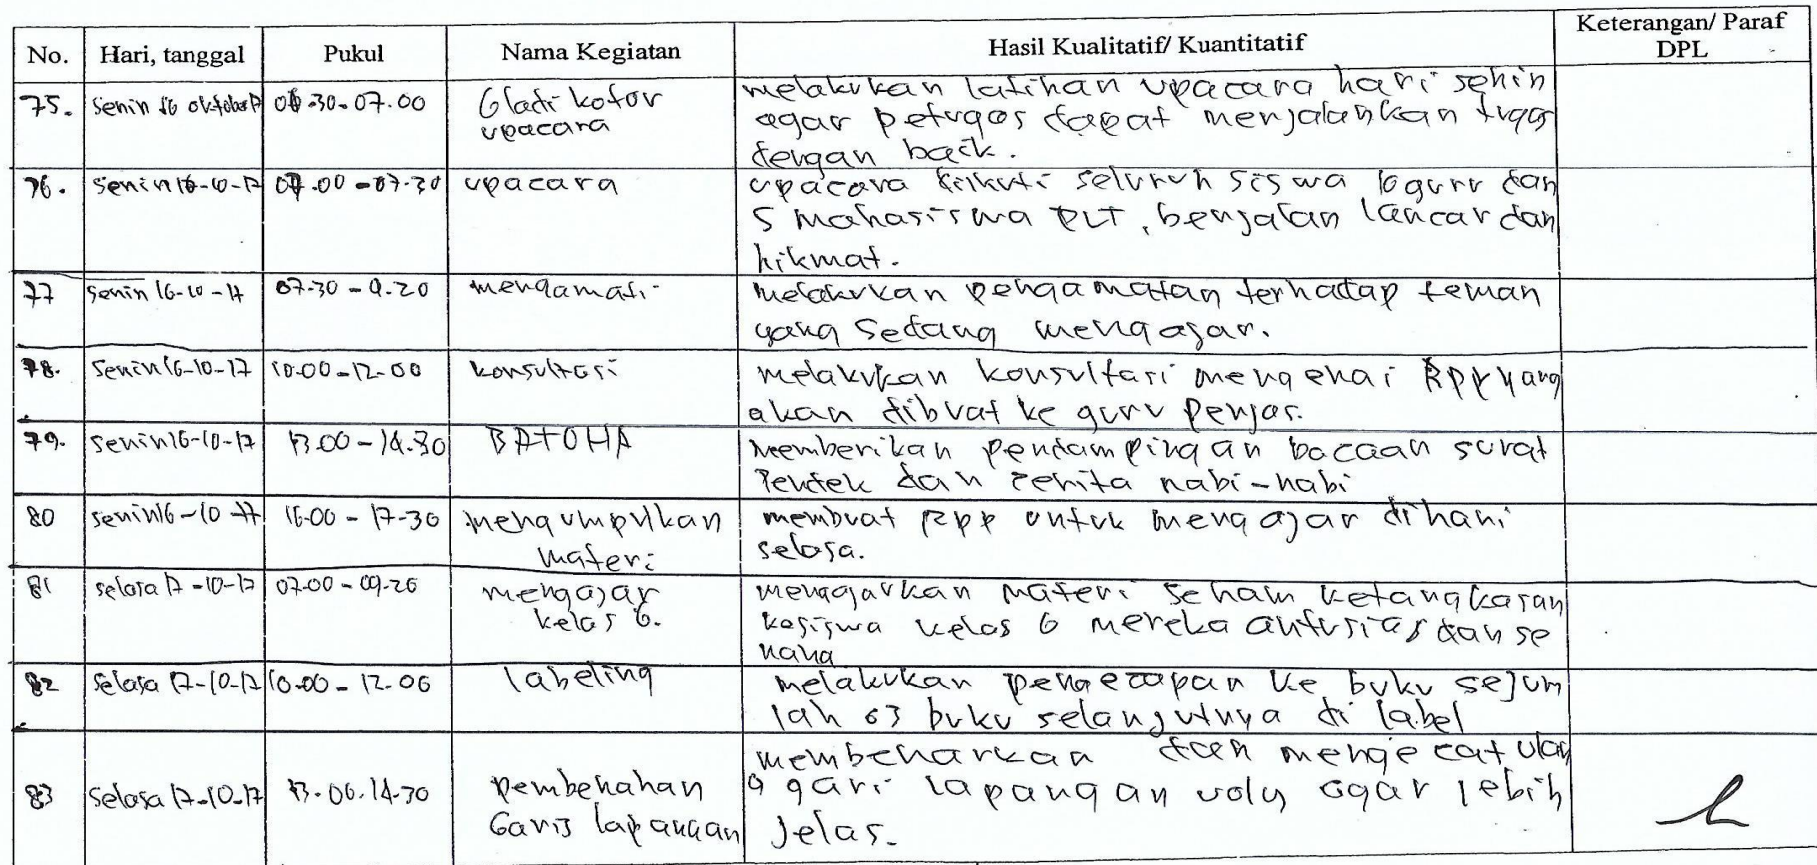 No. Hari, tanggal Pukul Nama Kegiatan Hasil Kualitatif/ Kuantitatif Keterangan/ Paraf DPL
75. Senin 16 oktober 17 06.30-07.00 Gladi kotor upacara melakukan latihan upacara hari senin
agar petugas dapat menjalankan tugas
dengan baik.
76. Senin 16-10-17 07.00-07.30 upacara upacara diikuti seluruh siswa 10 guru dan
5 mahasiswa PLT, berjalan lancar dan
hikmat.
77 Senin 16-10-17 07.30-9.20 mengamati melakukan pengamatan terhadap teman
yang sedang mengajar.
78. Senin 16-10-17 10.00-12.00 konsultasi melakukan konsultasi mengenai RPP yang
akan dibuat ke guru penjas.
79. Senin 16-10-17 13.00-14.30 BATOHA Memberikan pendampingan bacaan surat
Pendek dan cerita nabi-nabi
80 Senin 16-10-17 16.00-17-30 mengumpulkan materi membuat RPP untuk mengajar dihari
selasa.
81 selasa 17-10-17 07.00-09.20 mengajar kelas 6. mengajarkan materi senam ketangkasan
kesiswa kelas 6 mereka antusias dan se
nang
82 selasa 17-10-17 10.00-12.00 labeling melakukan pengecapan ke buku sejum
lah 63 buku selanjutnya di label
83 selasa 17-10-17 13.00.14.30 pembenahan Garis lapangan membenarkan dan mengecat ulan
g gari lapangan voly agar lebih
Jelas.